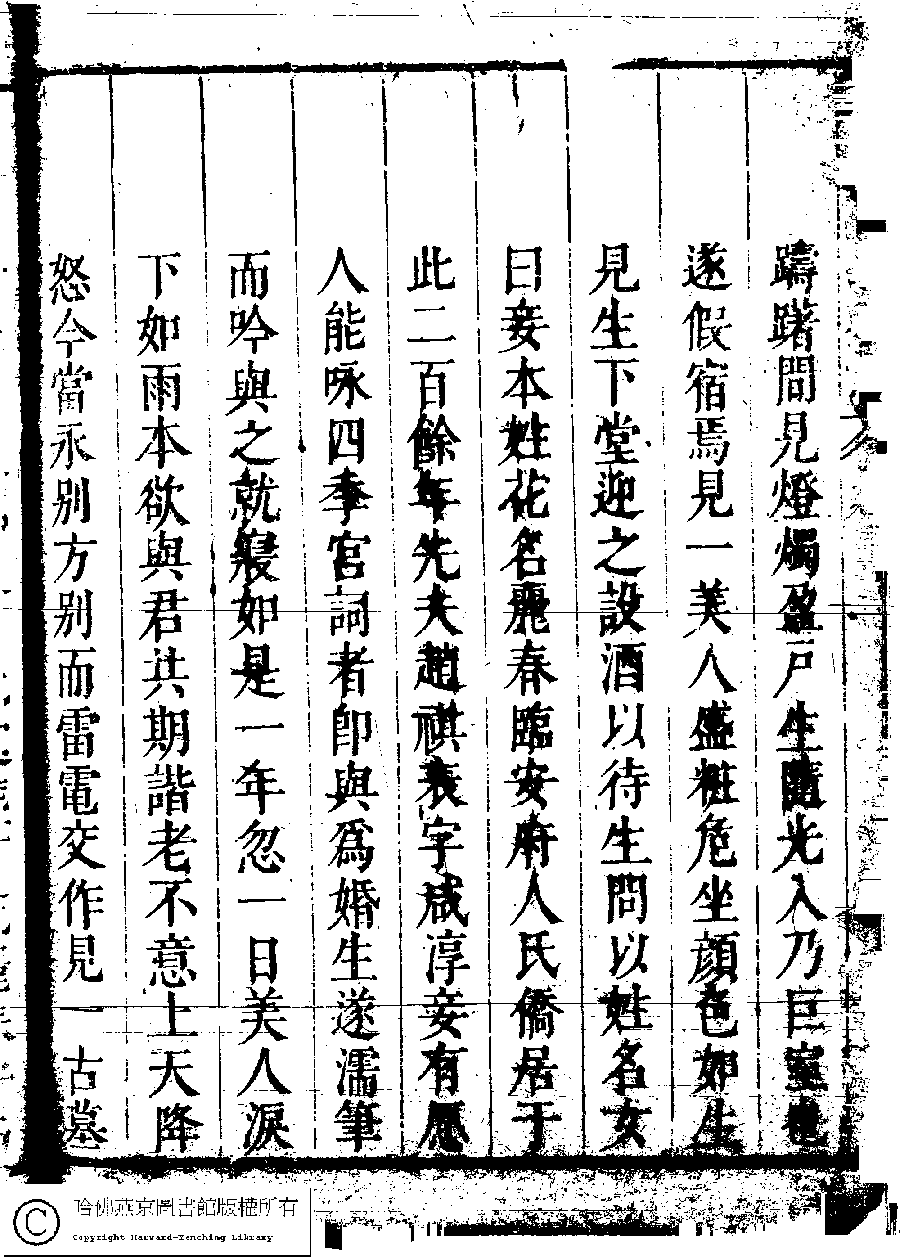 躊躇間見燈燭盈戸生隨光入乃巨室也
遂假宿焉見一美人盛粧危坐顔色如生
見生下堂迎之設酒以待生問以姓名女
曰妾本姓花名麗春臨安府人氏僑居于
此二百餘年先夫趙禥表字咸淳妾有愿
人能咏四季宮詞者卽與爲婚生遂濡筆
而吟與之就寢如是一年忽一日美人淚
下如雨本欲與君共期諧老不意上天降
怒今當永别方别而雷電交作見一古墓
哈佛燕京圖書館版權所有
Copyright Harvard-Yenching Library